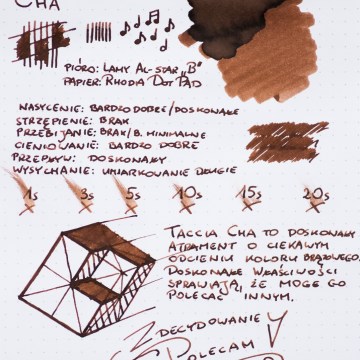 CHA
PIÓRO: LAMY AL-STAR „B"
PAPIER: RHODIA DOT PAD
NASYCENIE: BARDZO DOBRE/DOSKONAŁE
STRZĘPIENIE: BRAK
PRZEBIJANIE: BRAK/B. MINIMALNE
CIENIOWANIE: BARDZO DOBRE
PRZEPŁYW: DOSKONAŁY
WYSYCHANIE: UMIARKOWANIE DŁUGIE
1s 3s 5s 10s 15s 20s
TACCIA CHA TO DOSKONAŁY
ATRAMENT O CIEKAWYM
ODCIENIU KOLORU BRĄZOWEGO.
DOSKONAŁE WŁAŚCIWOŚCI
SPRAWIAJĄ, ŻE MOGĘ GO
POLECAĆ INNYM.
ZDECYDOWANIE
POLECAM